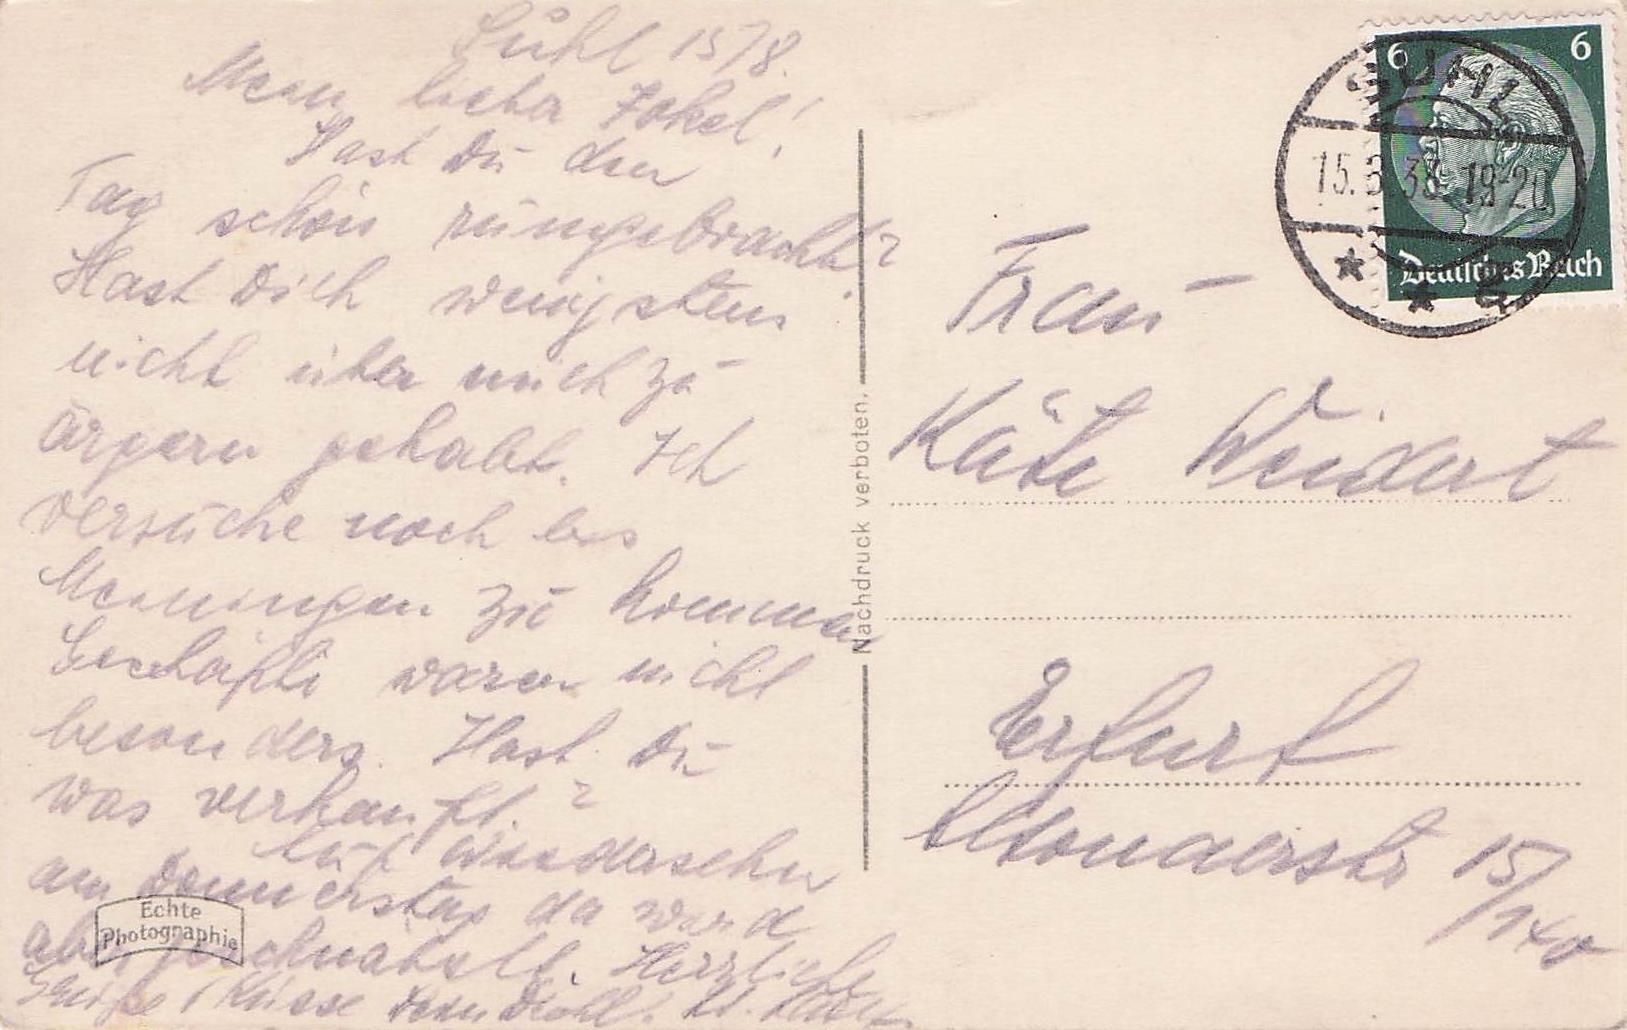 Suhl 15/8.
Mein lieber Jokel!
Hast Du den
Tag schön rumgebracht?
Hast Dich wenigstens
nicht über mich zu
ärgern gehabt. Ich
versuche noch bis
Meiningen zu kommen
Geschäfte waren nicht
besonders. Hast Du
was verkauft?
Auf Wiedersehn
am Donnerstag da wird
aber geschnäbelt. Herzliche
Grüße, Küsse Dein
Nachdruck verboten.
Echte
Photographie
6 6
Deutsches Reich
SUHL
15.8.38 19-20
Frau
Käte Weidert
Erfurt
Altonaerstr 15/